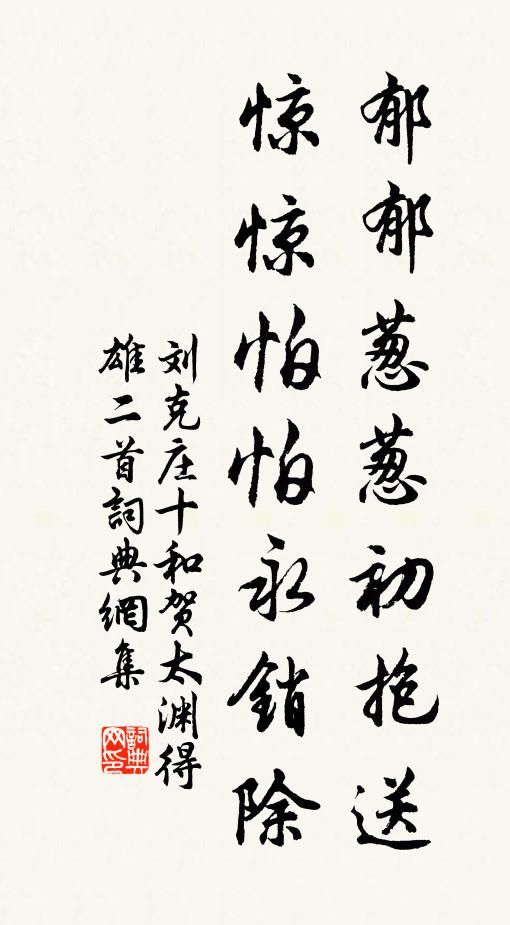 郁郁葱葱初抱送
惊惊怕怕永销除
刘克庄十和贺太渊得
雄二首詞典網集
詞典网印